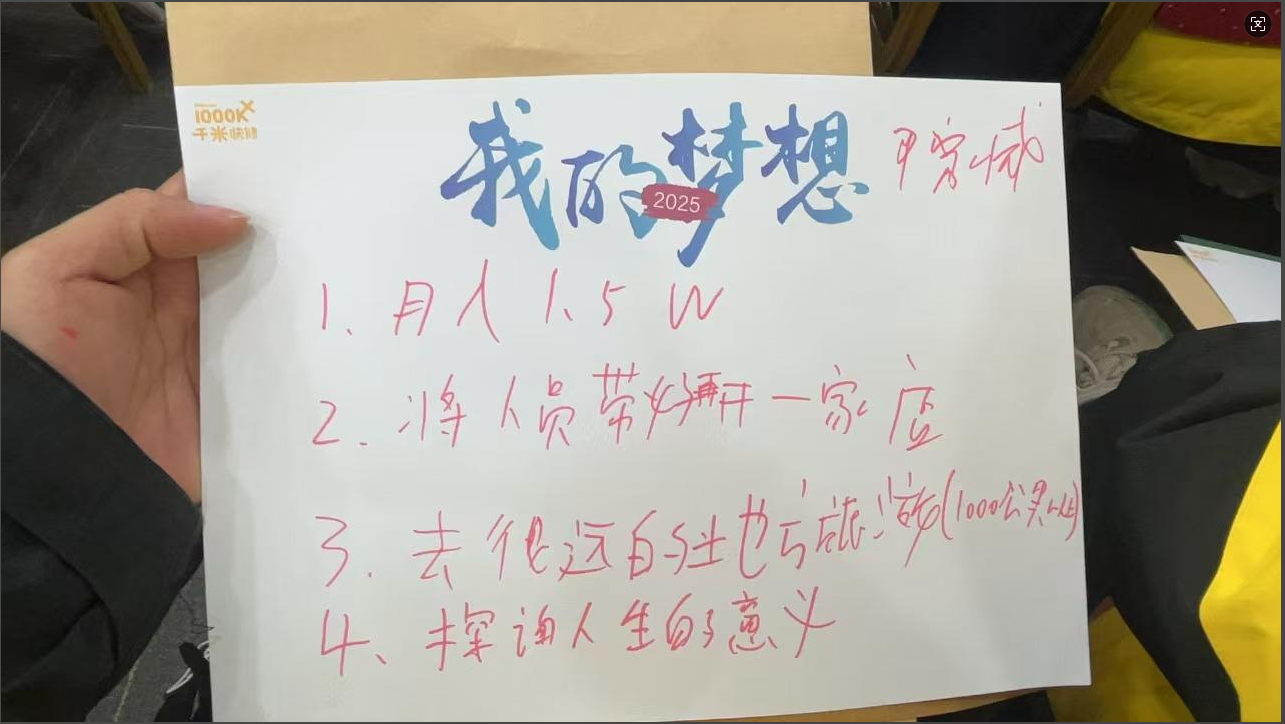 1000K
千米
我的梦想
2025
1、月入1.5W
2.将人员带好再开一家店
3.去很远的地方旅游(1000公里以上)
4、探询人生的意义